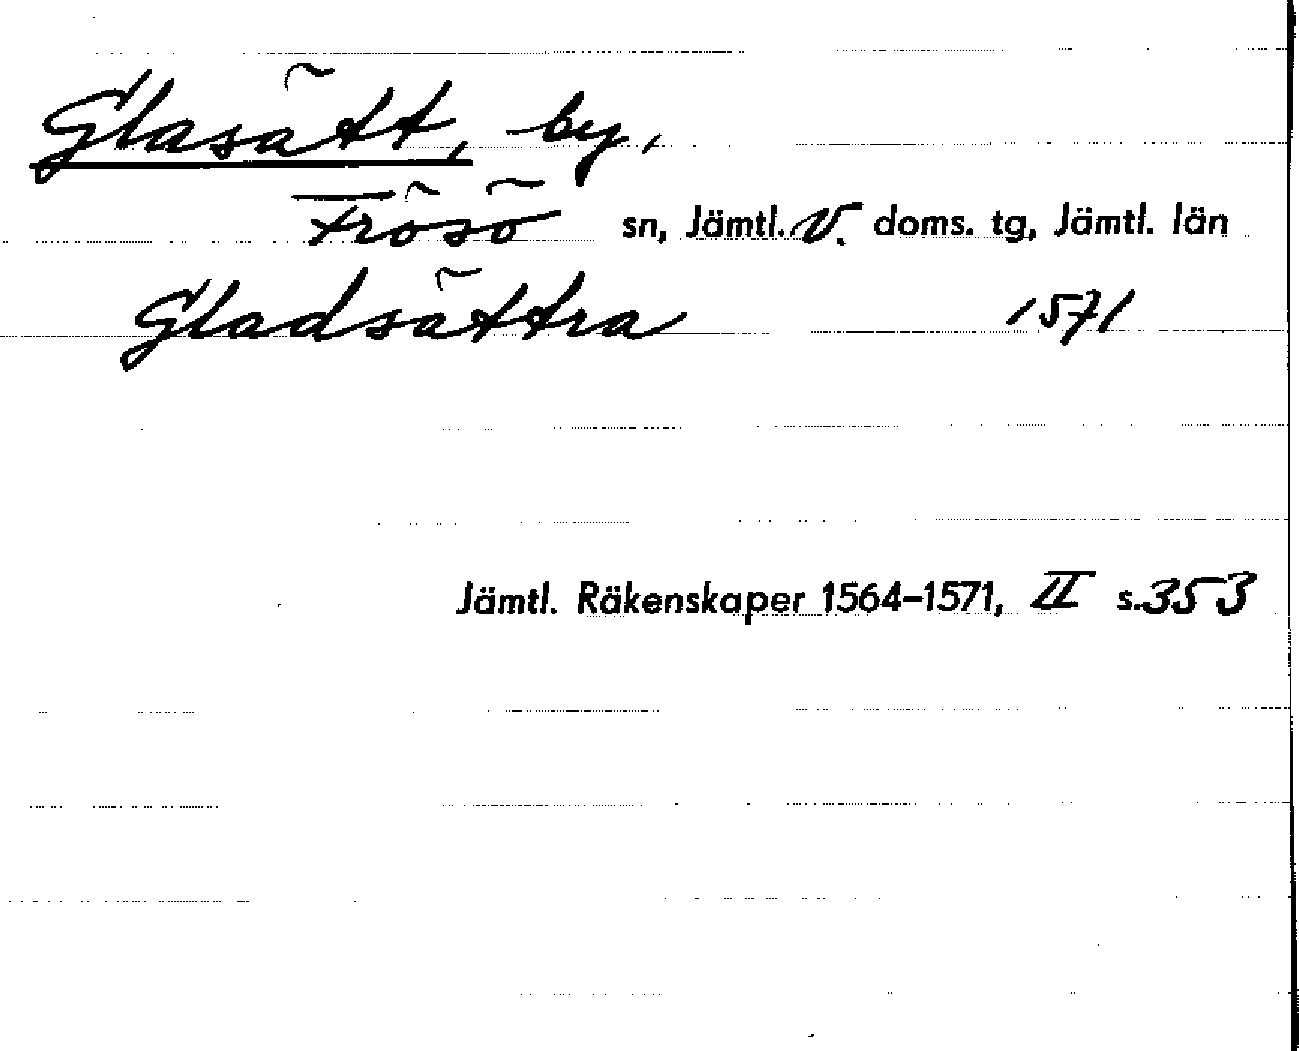 Glasätt, by,
Frösö sn, Jämtl. V. doms. tg, Jämtl. län
Gladsättra 1571
Jämtl. Räkenskaper 1564–1571, II s. 353